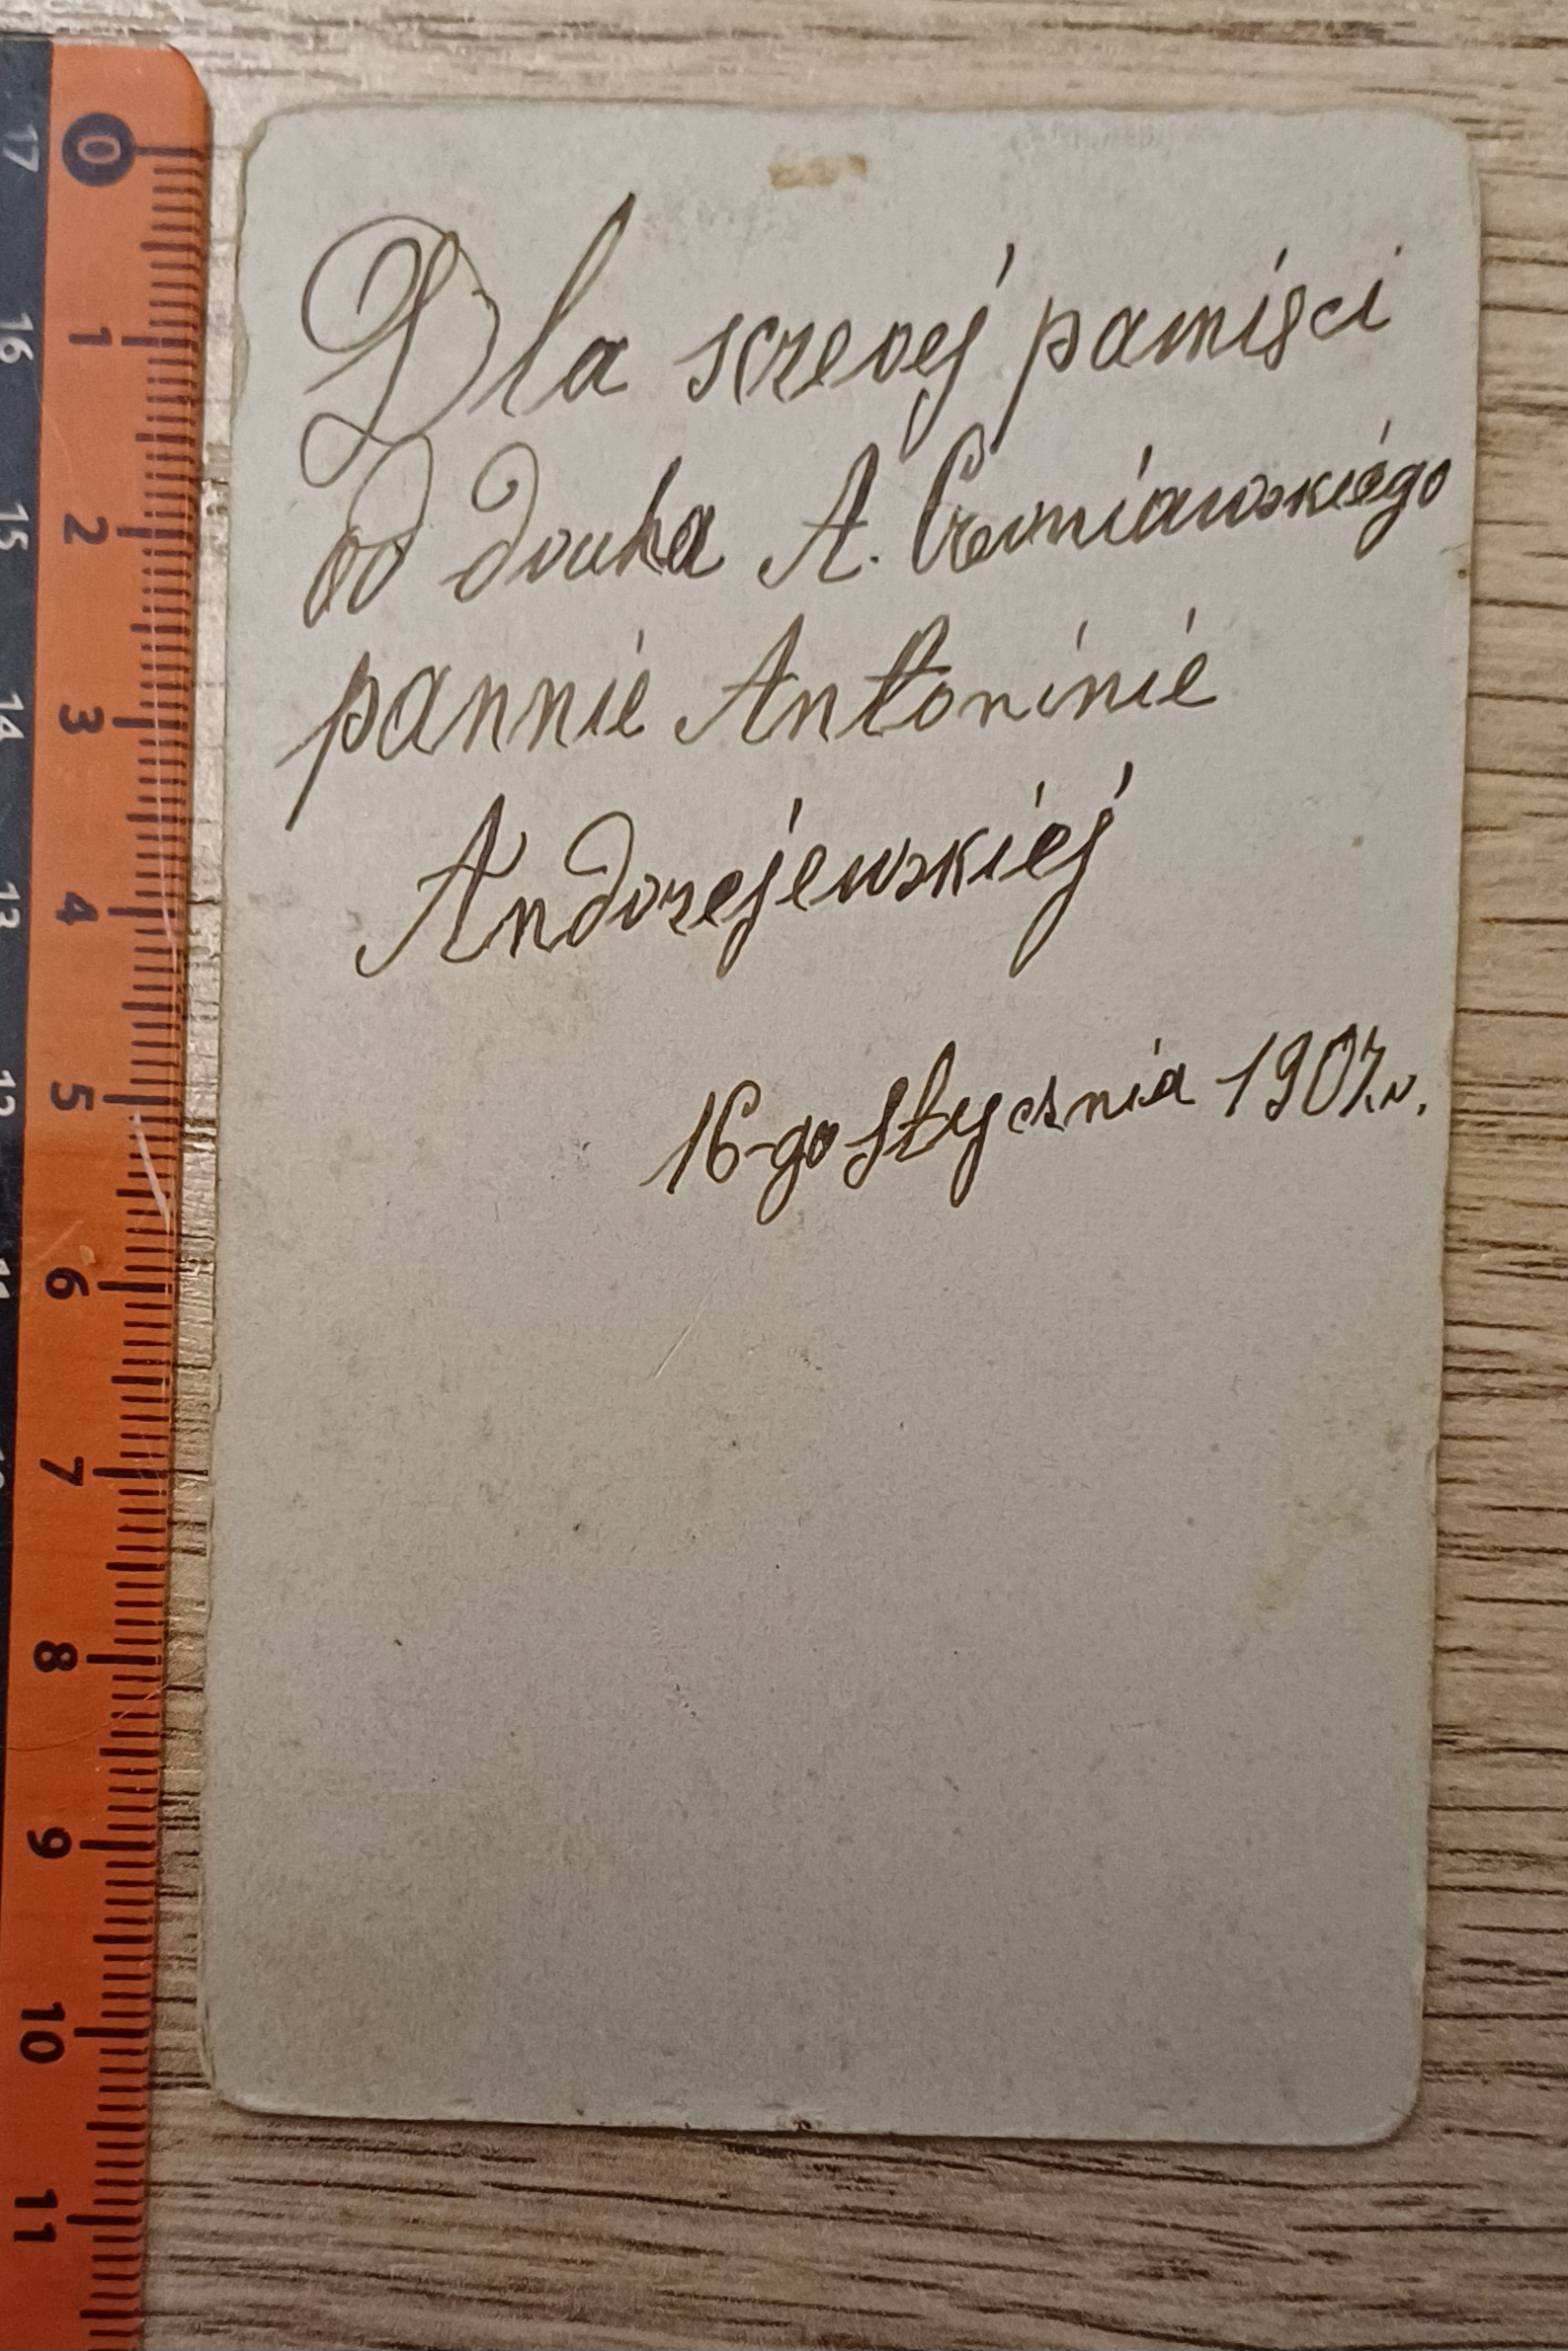 Dla sczerej pamięci
od druha A. Czerniawskiego
pannie Antoninie
Andrzejewskiej
16-go stycznia 1907 r.
0
1
2
3
4
5
6
7
8
9
10
11
17
16
15
14
13
12
11